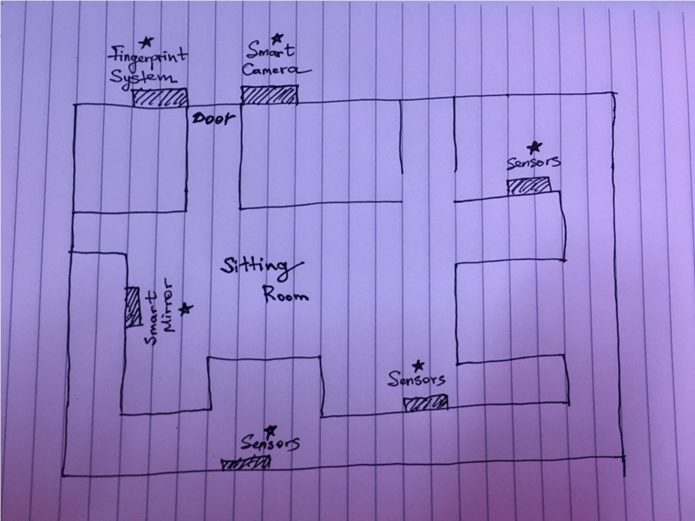 Fingerprint
System
Smart
Camera
Door
Sensors
Sitting
Room
Smart
Mirror
Sensors
Sensors